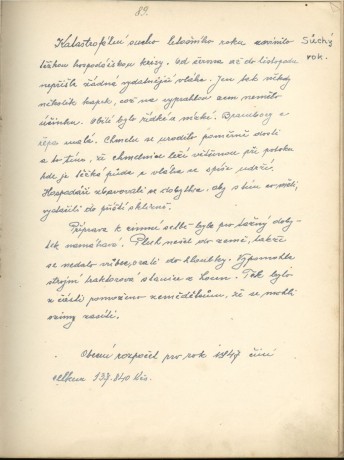 89.
Katastrofální sucho letošního roku zavinilo
Suchý
rok.
těžkou hospodářskou krizi. Od června až do listopadu
nepřišla žádná vydatnější vláha. Jen tak někdy
několik kapek, což na vyprahlou zem nemělo
účinku. Obilí bylo řídké a nízké. Brambory a
řepa malé. Chmele se urodilo poměrně dosti
a to tím, že chmelnice leží většinou při potoku
kde je těžká půda a vláha se spíše udrží.
Hospodáři zbavovali se dobytka, aby s tím co měli,
vydrželi do příští sklizně.
Příprava k zimní setbě byla pro tažný doby-
tek namáhavá. Pluh nešel do země, takže
se nedalo vůbec orati do hloubky. Vypomohla
strojní traktorová stanice z Loun. Tak bylo
z části pomoženo zemědělcům, že se mohli
ozimy zasíti.
Obecní rozpočet pro rok 1947 činí
celkem 137.040 Kčs.